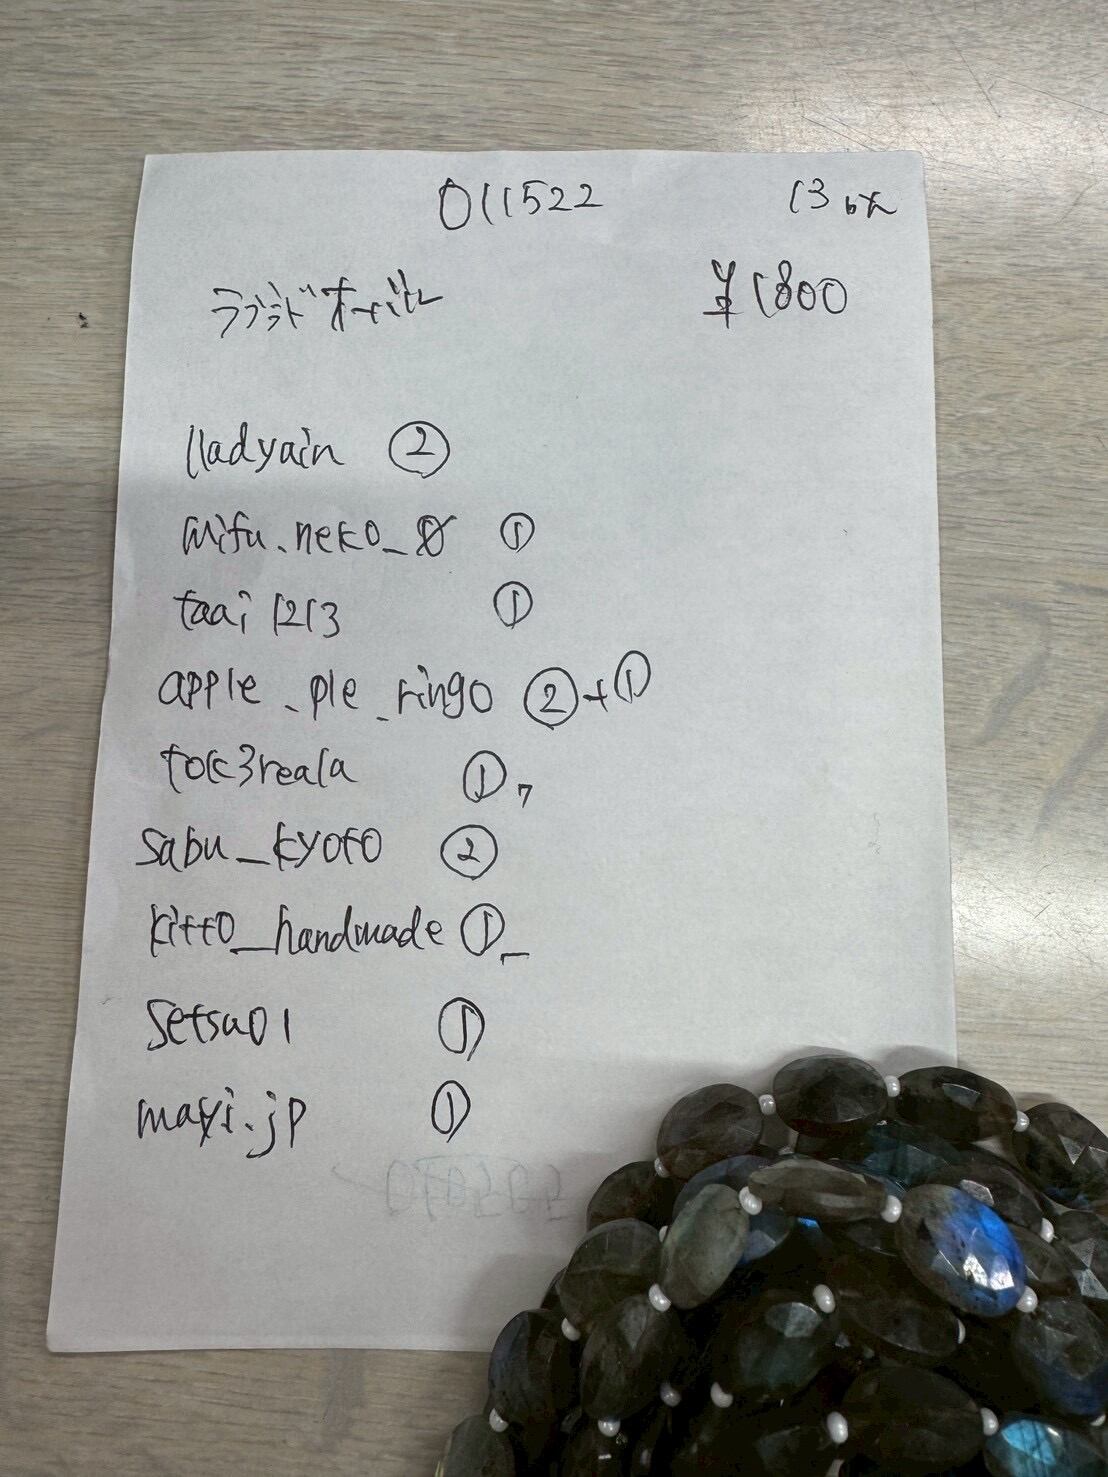 011522 13
ラブラドオーバル ¥1800
lladyain ②
mifu.neko_8 ①
taai1213 ①
apple_ple_ringo ②+①
①
sabu_kyoto ②
kitto_handmade ①
setsu01 ①
mayi.jp ①